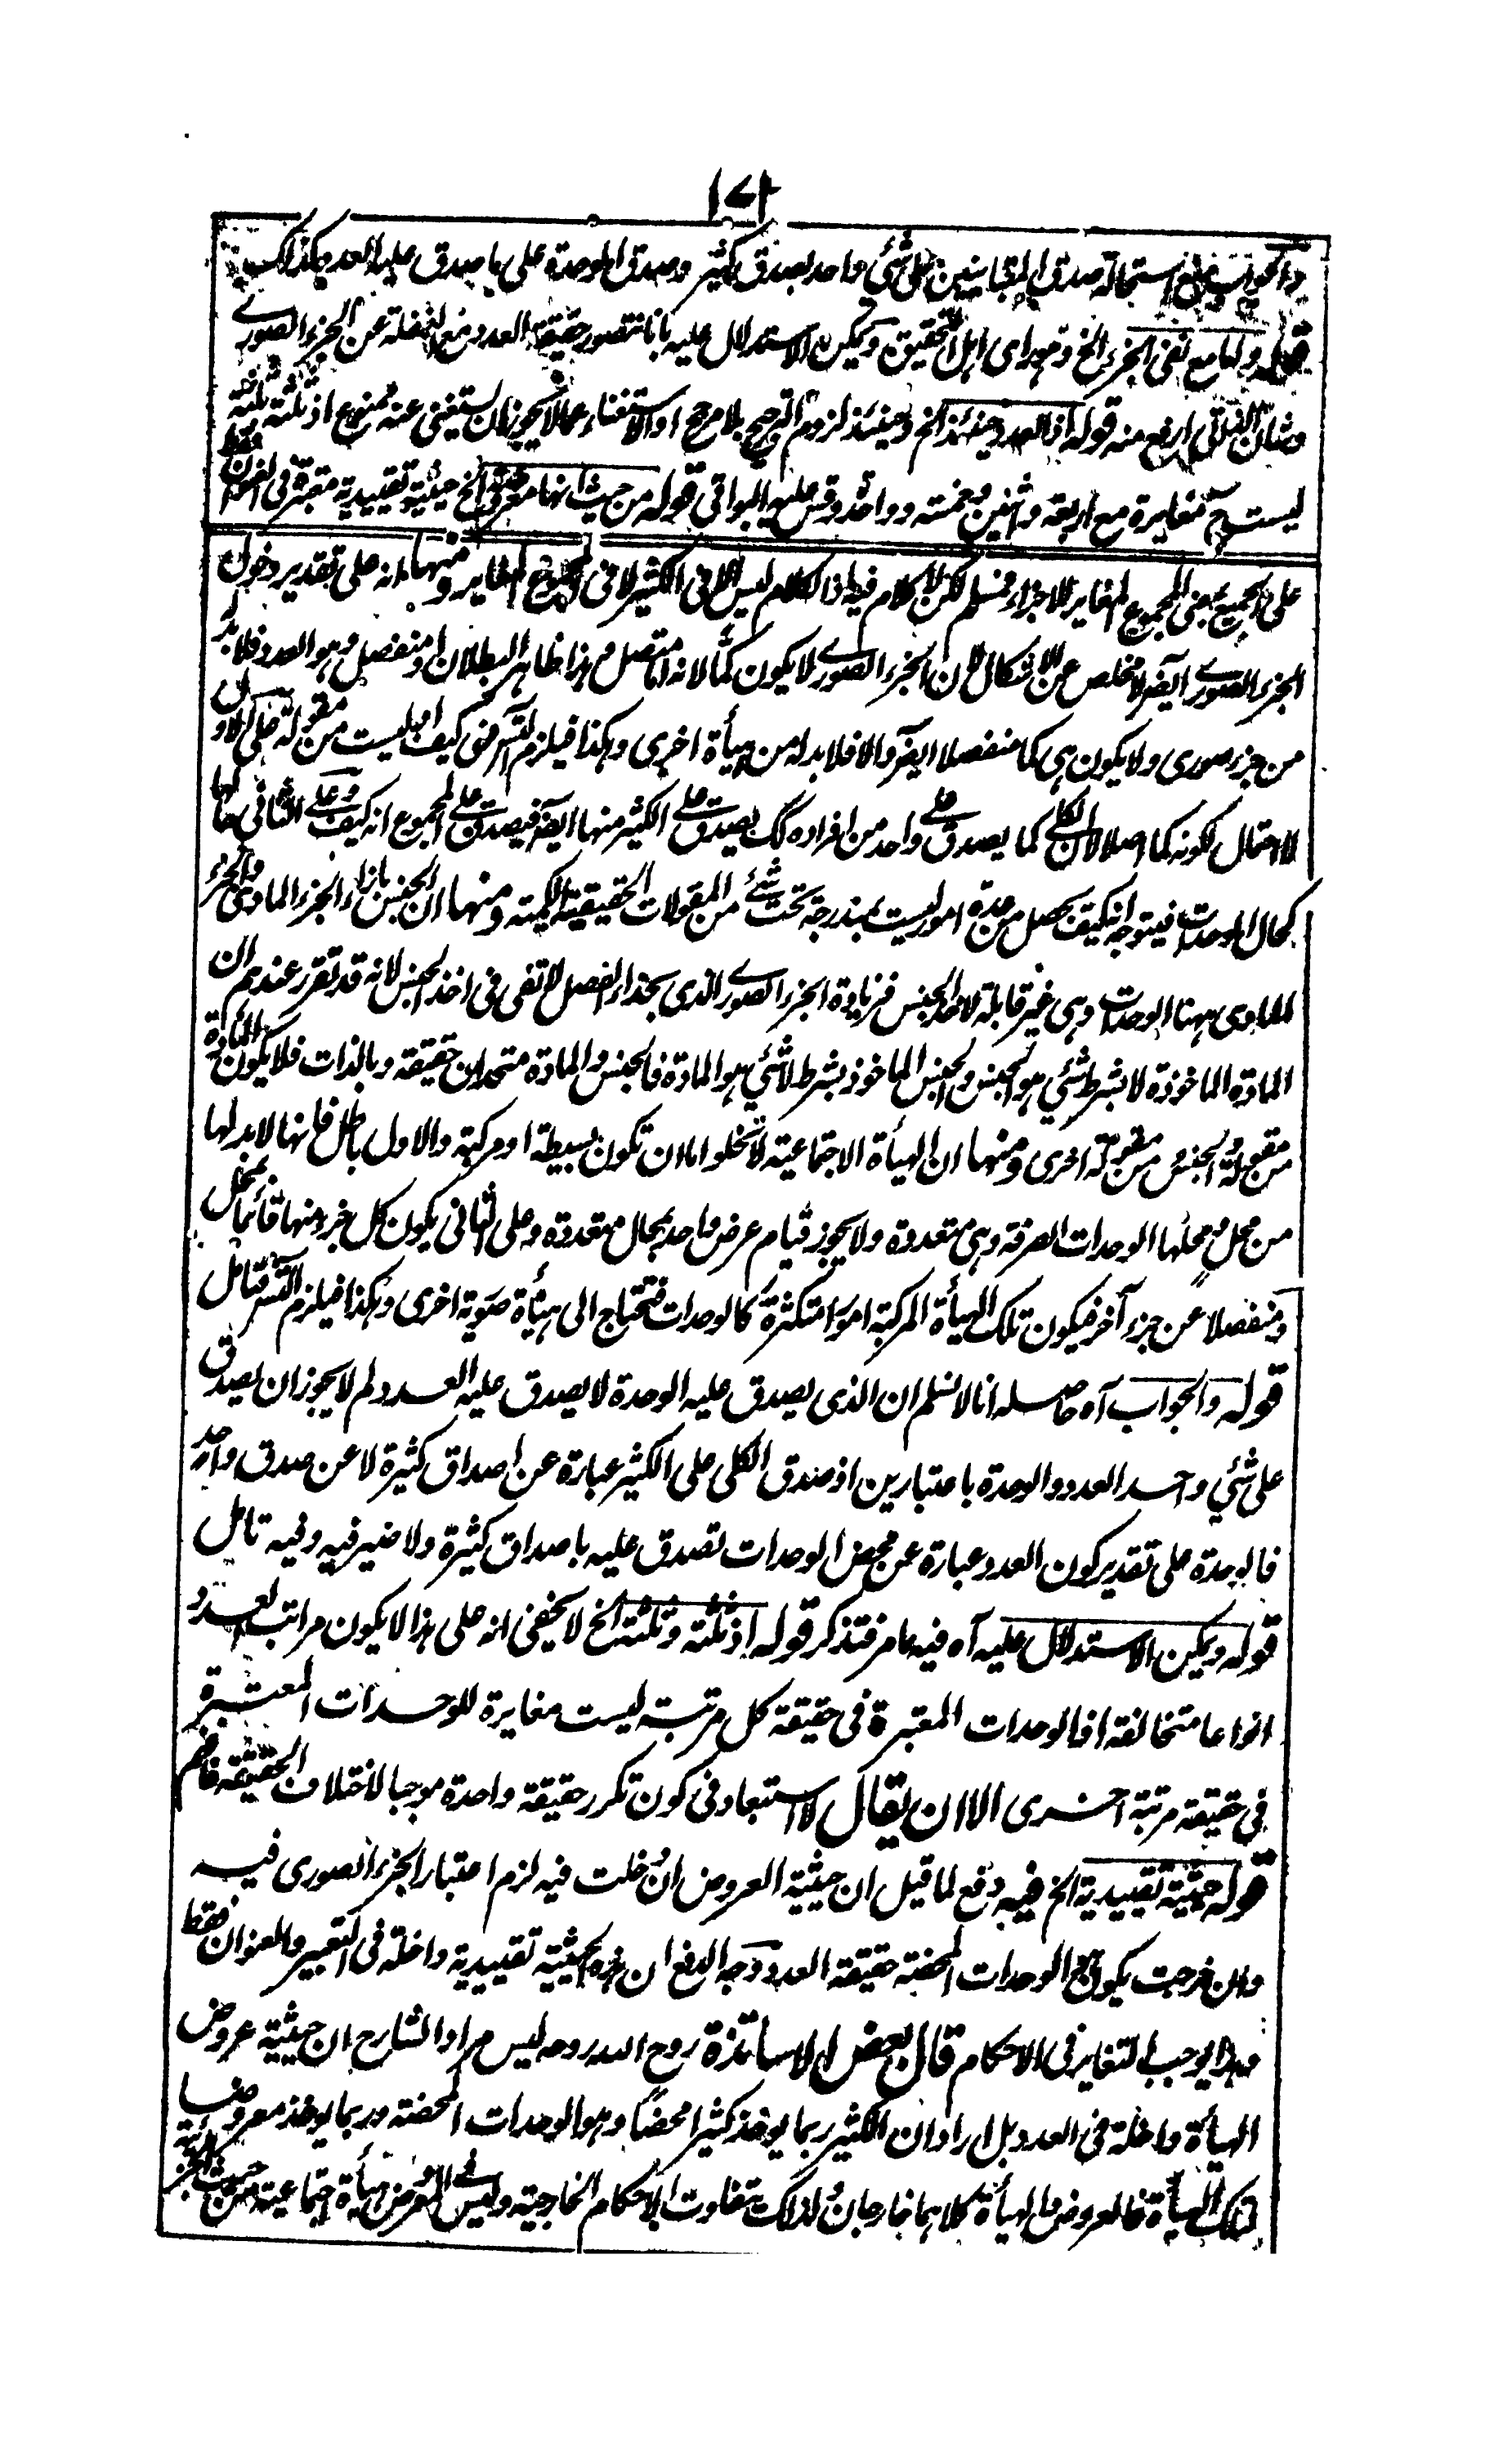 ١٧٢
والجواب منع استحالة صدق المتباينين على شئ واحد بصدق كثير وصدق الوحدة على ما صدق عليه العدد كذلك
قوله واما مع نفى الجزء الخ وهو راى اهل التحقيق ويمكن الاستدلال عليه بانا نتصور حقيقة العدد مع الغفلة عن الجزء الصورى
وشان الذاتى ارفع منه قوله اذ العدد حينئذ الخ وحينئذ لزوم الترجيح بلا مرجح او الاستغناء عما لا يجوز ان يستغنى عنه ممنوع اذ ثلثة وثلثة
ليست ح مغايرة مع اربعة واثنين وخمسة وواحد وقس عليه البواقى قوله من حيث انها معروضة الخ حيثية تقييدية معتبرة فى العنوان فقط
على الجميع بمعنى المجموع المغاير للاجزاء فمسلم لكن لا كلام فيه اذ الكلام ليس الا فى الكثير لا فى المجموع المغاير ومنها انه على تقدير دخول
الجزء الصورى ايضا لا مخلص عن الاشكال لان الجزء الصورى لا يكون كما لانه اما متصل وهذا ظاهر البطلان او منفصل وهو العدد فلا بد له
من جزء صورى ولا يكون هى كما منفصلا ايضا والا فلا بد له من هيأة اخرى وهكذا فيلزم التس فهى كيف او ليست من مقولة على الاول
لا احتمال لكونه كما اصلا لان الكلى كما يصدق على واحد من افراده كك يصدق على الكثير منها ايضا فيصدق على المجموع انه كيف وعلى الثانى حالها
كحال الوحدات فيتوجه انه كيف يحصل من عدة امور ليست بمندرجة تحت شئ من المقولات الحقيقة الكمية ومنها ان الجنس بازاء الجزء المادى والجزء
المادى ههنا الوحدات وهى غير قابلة لاخذ الجنس فزيادة الجزء الصورى الذى بحذاء الفصل لا تفى فى اخذ الجنس لانه قد تقرر عندهم ان
المادة الماخوذة لا بشرط شئ هو الجنس والجنس الماخوذ بشرط لا شئ هو المادة فالجنس والمادة متحدان حقيقة وبالذات فلا يكون المادة
من مقولة والجنس من مقولة اخرى ومنها ان الهيأة الاجتماعية لا تخلو اما ان تكون بسيطة او مركبة والاول باطل فانها لا بد لها
من محل ومحلها الوحدات الصرفة وهى متعددة ولا يجوز قيام عرض واحد بمحال متعددة وعلى الثانى يكون كل جزء منها قائما بمحل
ومنفصلا عن جزء آخر فيكون تلك الهيأة المركبة امورا متكثرة كالوحدات فتحتاج الى هيأة صورية اخرى وهكذا فيلزم التس فتامل
قوله والجواب آه حاصله انا لا نسلم ان الذى يصدق عليه الوحدة لا يصدق عليه العدد لم لا يجوز ان يصدق
على شئ واحد العدد والوحدة باعتبارين اذ صدق الكلى على الكثير عبارة عن اصداق كثيرة لا عن صدق واحد
فالوحدة على تقدير كون العدد عبارة عن محض الوحدات تصدق عليه باصداق كثيرة ولا ضير فيه وفيه تامل
قوله ويمكن الاستدلال عليه آه فيه ما مر فتذكر قوله اذ ثلثة وثلثة الخ لا يخفى انه على هذا لا يكون مراتب العدد
انواعا متخالفة اذ الوحدات المعتبرة فى حقيقة كل مرتبة ليست مغايرة للوحدات المعتبرة
فى حقيقة مرتبة اخرى الا ان يقال لا استبعاد فى كون تكرر حقيقة واحدة موجبا لاختلاف الحقيقة فافهم
قوله حيثية تقييدية الخ فيه دفع لما قيل ان حيثية العروض ان دخلت فيه لزم اعتبار الجزء الصورى فيه
وان خرجت يكون مع الوحدات المحضة حقيقة العدد ووجه الدفع ان هذه الحيثية تقييدية داخلة فى التعبير والعنوان فقط
وهذا يوجب التغاير فى الاحكام قال بعض الاساتذة روح الله روحه ليس مراد الشارح ان حيثية عروض
الهيأة داخلة فى العدد بل اراد ان الكثير ربما يوخذ كثيرا محضا وهو الوحدات المحضة وربما يوخذ معروضا
لتلك الهيأة فالعروض والهيأة كلاهما خارجان لذلك يتفاوت الاحكام الخارجية وليس المعروض هيأة اجتماعية من حيث الجزئية